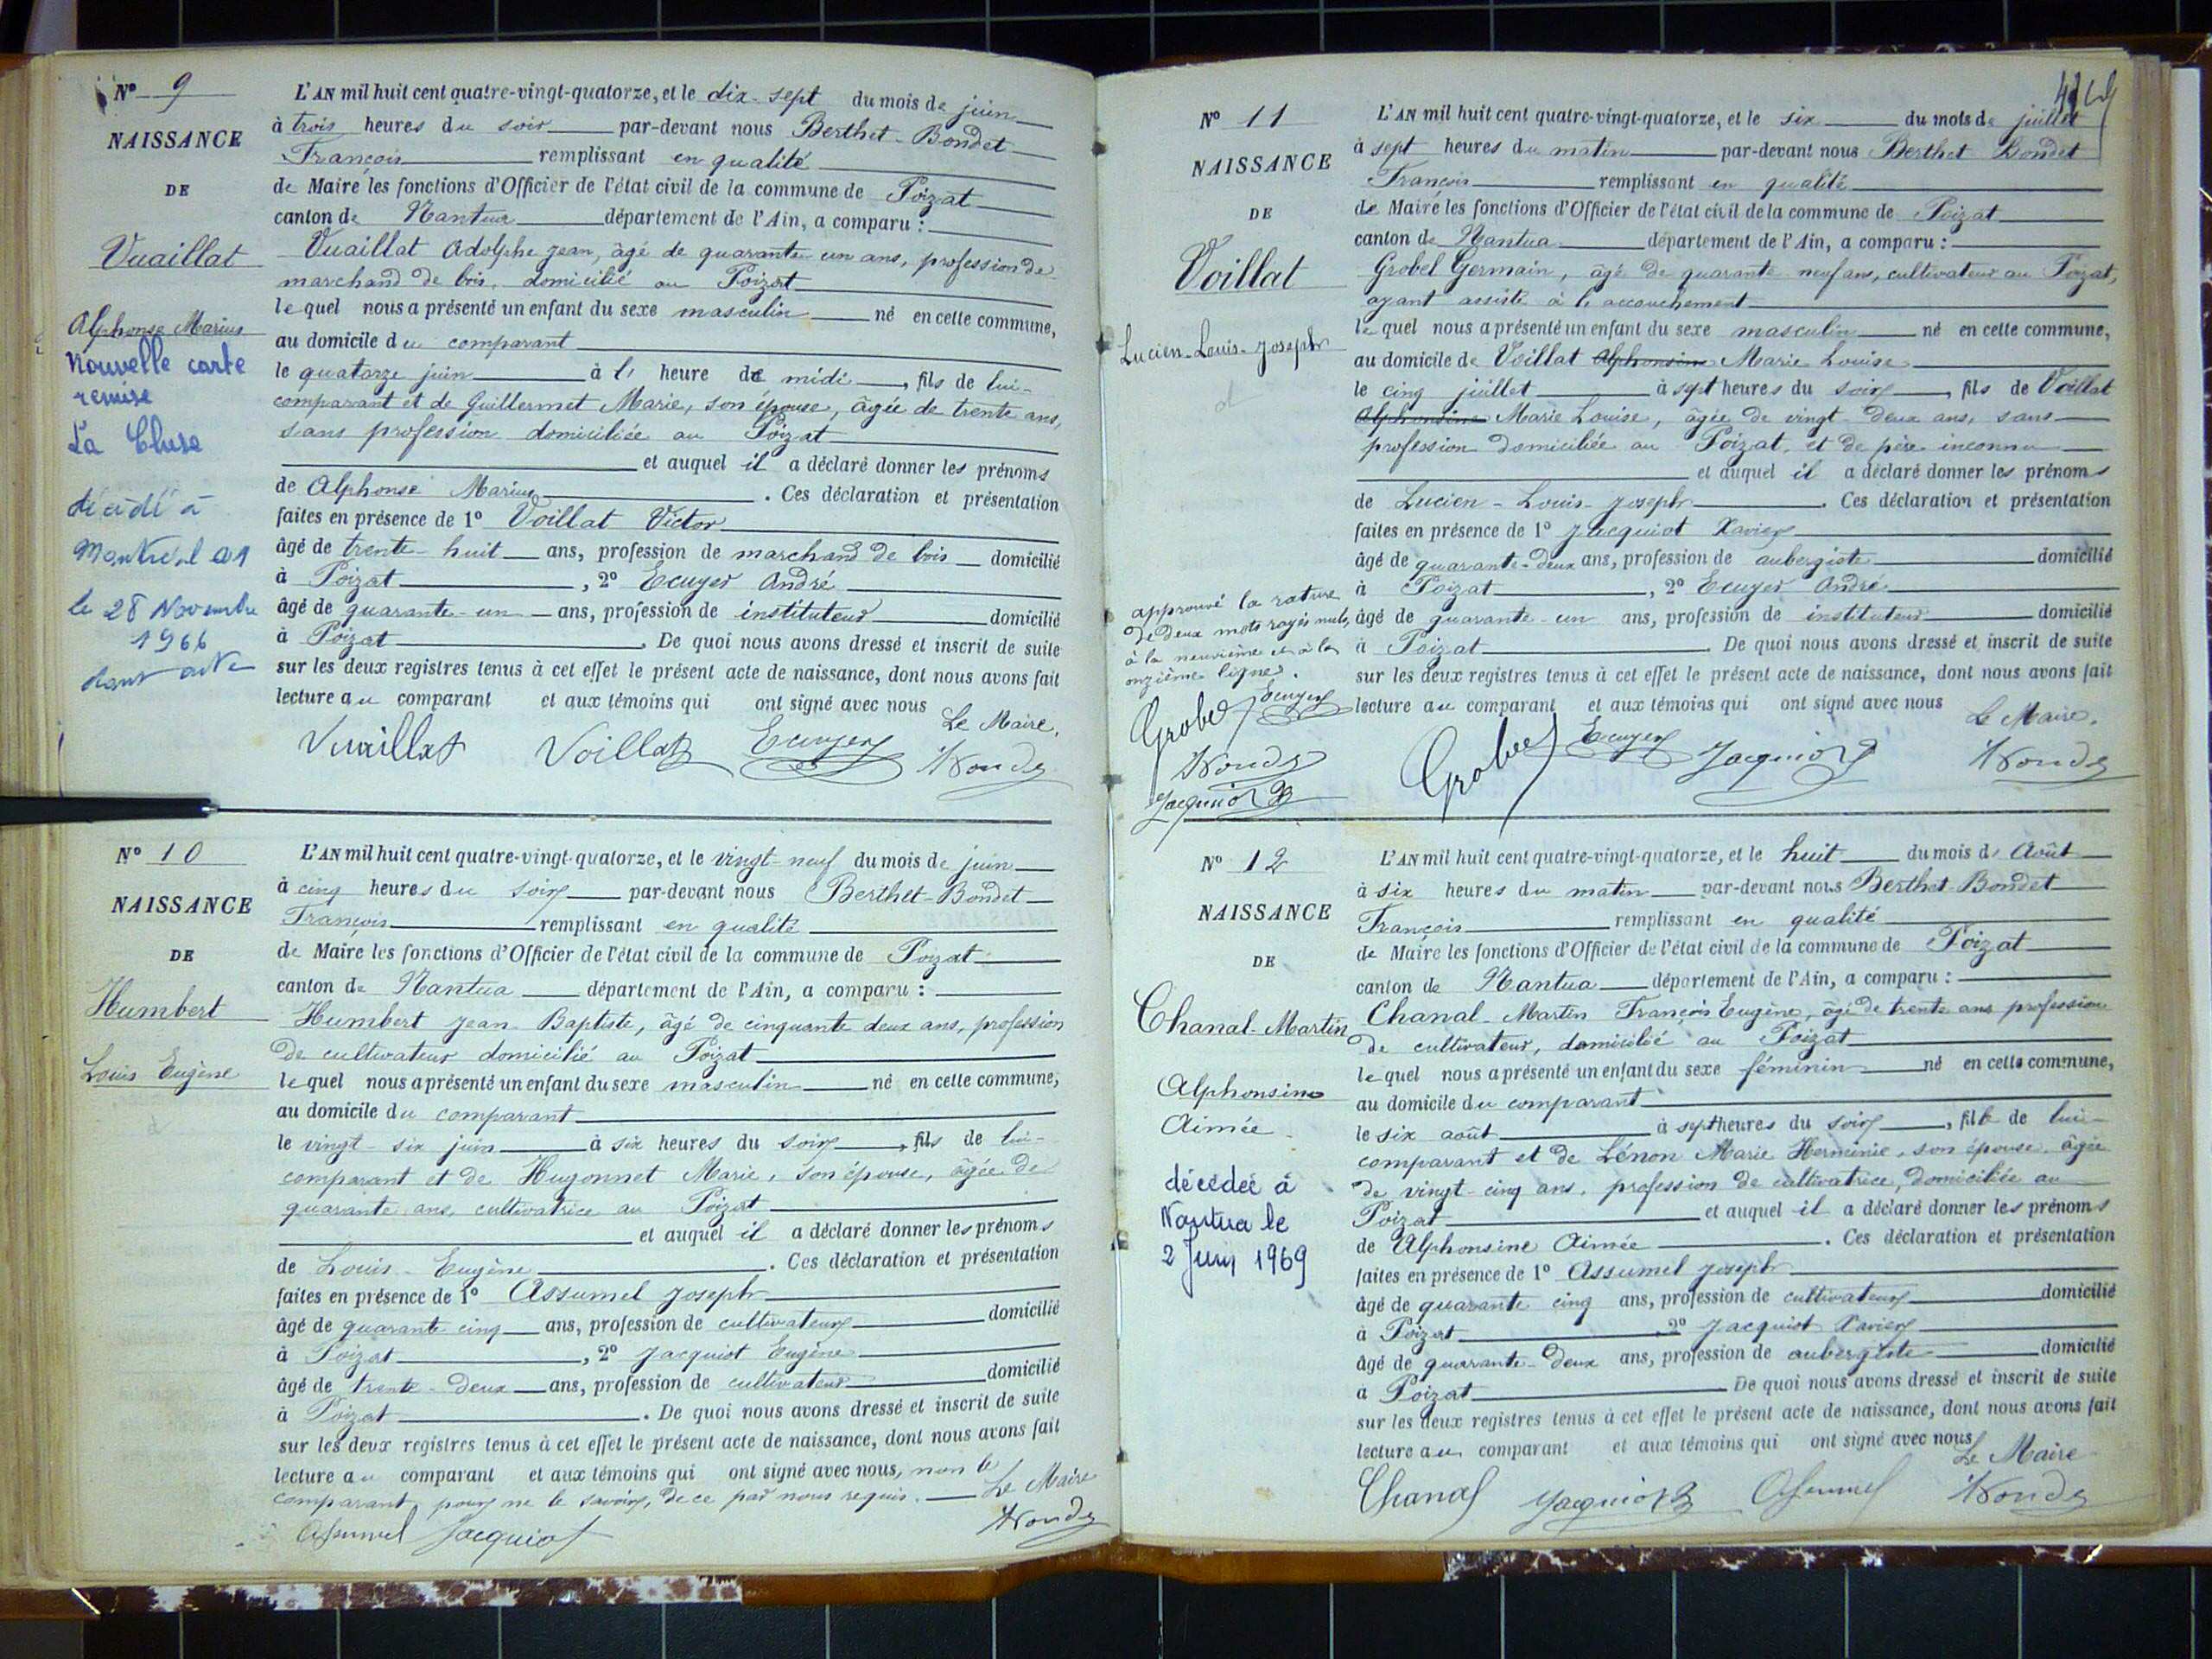 N° 9
NAISSANCE
DE
Vuaillat
Alphonse Marius
Nouvelle carte
remise
La Cluse
décédé à
Montréal 01
le 28 Novembre
1966
dont acte
L'AN mil huit cent quatre-vingt-quatorze, et le dix-sept du mois de juin
à trois heures du soir par-devant nous Berthet-Bondet
François remplissant en qualité
de Maire les fonctions d'Officier de l'état civil de la commune de Poizat
canton de Nantua département de l'Ain, a comparu :
Vuaillat Adolphe Jean, âgé de quarante un ans, profession de
marchand de bois, domicilié au Poizat
lequel nous a présenté un enfant du sexe masculin né en cette commune,
au domicile du comparant
le quatorze juin à l' heure de midi, fils de lui-
comparant et de Guillermet Marie, son épouse, âgée de trente ans,
sans profession domiciliée au Poizat
et auquel il a déclaré donner les prénoms
de Alphonse Marius. Ces déclaration et présentation
faites en présence de 1° Voillat Victor
âgé de trente-huit ans, profession de marchand de bois domicilié
à Poizat, 2° Ecuyer André
âgé de quarante-un ans, profession de instituteur domicilié
à Poizat. De quoi nous avons dressé et inscrit de suite
sur les deux registres tenus à cet effet le présent acte de naissance, dont nous avons fait
lecture au comparant et aux témoins qui ont signé avec nous
Le Maire,
Vuaillat Voillat Ecuyer
N° 10
NAISSANCE
DE
Humbert
Louis Eugène
L'AN mil huit cent quatre-vingt-quatorze, et le vingt-neuf du mois de juin
à cinq heures du soir par-devant nous Berthet-Bondet
François remplissant en qualité
de Maire les fonctions d'Officier de l'état civil de la commune de Poizat
canton de Nantua département de l'Ain, a comparu :
Humbert Jean Baptiste, âgé de cinquante deux ans, profession
de cultivateur domicilié au Poizat
lequel nous a présenté un enfant du sexe masculin né en cette commune,
au domicile du comparant
le vingt-six juin à six heures du soir, fils de lui-
comparant et de Hugonnet Marie, son épouse, âgée de
quarante ans, cultivatrice au Poizat
et auquel il a déclaré donner les prénoms
de Louis-Eugène. Ces déclaration et présentation
faites en présence de 1° Assumel Joseph
âgé de quarante cinq ans, profession de cultivateur domicilié
à Poizat, 2° Jacquiot Eugène
âgé de trente-deux ans, profession de cultivateur domicilié
à Poizat. De quoi nous avons dressé et inscrit de suite
sur les deux registres tenus à cet effet le présent acte de naissance, dont nous avons fait
lecture au comparant et aux témoins qui ont signé avec nous, non le
comparant pour ne le savoir, de ce par nous requis. Le Maire
Assumel Jacquiot
N° 11
NAISSANCE
DE
Voillat
Lucien-Louis-Joseph
approuvé la rature
de deux mots rayés nuls,
à la neuvième et à la
onzième ligne.
Grobel Ecuyer
Jacquiot
L'AN mil huit cent quatre-vingt-quatorze, et le six du mois de juillet
à sept heures du matin par-devant nous Berthet Bondet
François remplissant en qualité
de Maire les fonctions d'Officier de l'état civil de la commune de Poizat
canton de Nantua département de l'Ain, a comparu :
Grobel Germain, âgé de quarante neuf ans, cultivateur au Poizat,
ayant assisté à l'accouchement
lequel nous a présenté un enfant du sexe masculin né en cette commune,
au domicile de Voillat Alphonsine Marie Louise
le cinq juillet à sept heures du soir, fils de Voillat
Alphonsine Marie Louise, âgée de vingt-deux ans, sans
profession domiciliée au Poizat, et de père inconnu
et auquel il a déclaré donner les prénoms
de Lucien-Louis-Joseph. Ces déclaration et présentation
faites en présence de 1° Jacquiot Xavier
âgé de quarante-deux ans, profession de aubergiste domicilié
à Poizat, 2° Ecuyer André
âgé de quarante-un ans, profession de instituteur domicilié
à Poizat. De quoi nous avons dressé et inscrit de suite
sur les deux registres tenus à cet effet le présent acte de naissance, dont nous avons fait
lecture au comparant et aux témoins qui ont signé avec nous
Le Maire,
Grobel Ecuyer Jacquiot
N° 12
NAISSANCE
DE
Chanal-Martin
Alphonsine
Aimée
décédée à
Nantua le
2 Juin 1969
L'AN mil huit cent quatre-vingt-quatorze, et le huit du mois d' Août
à six heures du matin par-devant nous Berthet-Bondet
François remplissant en qualité
de Maire les fonctions d'Officier de l'état civil de la commune de Poizat
canton de Nantua département de l'Ain, a comparu :
Chanal-Martin François Eugène, âgé de trente ans profession
de cultivateur, domicilié au Poizat
lequel nous a présenté un enfant du sexe féminin né en cette commune,
au domicile du comparant
le six août à sept heures du soir, fille de lui-
comparant et de Lénon Marie Herminie, son épouse, âgée
de vingt-cinq ans, profession de cultivatrice, domiciliée au
Poizat et auquel il a déclaré donner les prénoms
de Alphonsine Aimée. Ces déclaration et présentation
faites en présence de 1° Assumel Joseph
âgé de quarante cinq ans, profession de cultivateur domicilié
à Poizat, 2° Jacquiot Xavier
âgé de quarante-deux ans, profession de aubergiste domicilié
à Poizat De quoi nous avons dressé et inscrit de suite
sur les deux registres tenus à cet effet le présent acte de naissance, dont nous avons fait
lecture au comparant et aux témoins qui ont signé avec nous
Le Maire
Chanal Jacquiot Assumel